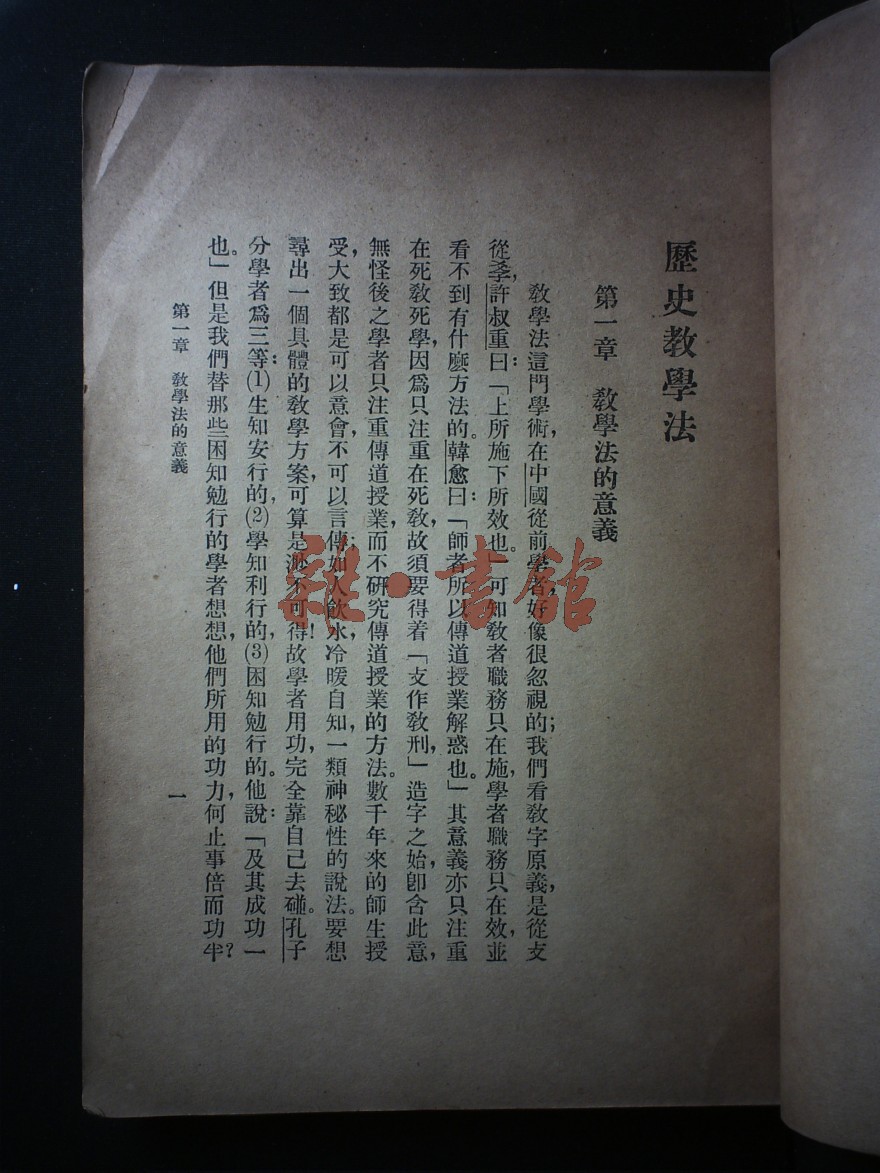 歷史教學法
第一章　教學法的意義
教學法這門學術，在中國從前學者，好像很忽視的；我們看教字原義，是從攴
從㸒，許叔重曰：「上所施下所效也。」可知教者職務只在施，學者職務只在效，並
看不到有什麼方法的。韓愈曰：「師者所以傳道授業解惑也。」其意義亦只注重
在死教死學，因爲只注重在死教，故須要得着「支作教刑，」造字之始，卽含此意，
無怪後之學者只注重傳道授業，而不研究傳道授業的方法。數千年來的師生授
受，大致都是可以意會，不可以言傳；如人飲水，冷暖自知，一類神秘性的說法。要想
尋出一個具體的教學方案，可算是渺不可得！故學者用功，完全靠自己去碰。孔子
分學者爲三等：(1)生知安行的，(2)學知利行的，(3)困知勉行的。他說：「及其成功一
也。」但是我們替那些困知勉行的學者想想，他們所用的功力，何止事倍而功半？
第一章　教學法的意義
一
雜·書館